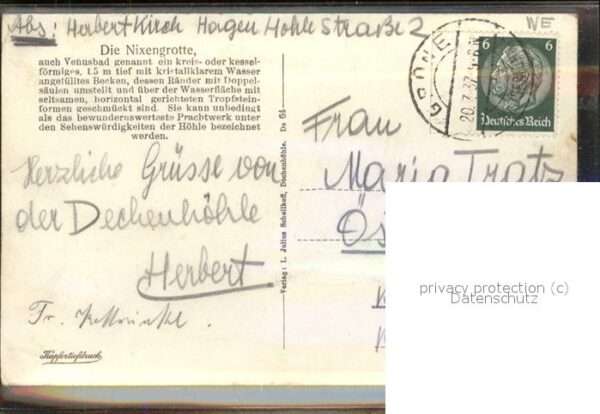 Abs: Herbert Kirch Hagen Hohle Straße 2
WE
Die Nixengrotte,
auch Venusbad genannt ein kreis- oder kessel-
förmiges, 1,5 m tief mit kristallklarem Wasser
angefülltes Becken, dessen Ränder mit Doppel-
säulen umstellt und über der Wasserfläche mit
seltsamen, horizontal gerichteten Tropfstein-
formen geschmückt sind. Sie kann unbedingt
als das bewundernswerteste Prachtwerk unter
den Sehenswürdigkeiten der Höhle bezeichnet
werden.
Herzliche Grüsse von
der Dechenhöhle
Herbert
Kupfertiefdruck
Verlag: L. Julius Schellhoff, Dechenhöhle.
GRÜNE
20.7.37
6 6
Deutsches Reich
Frau
Maria Tratz
privacy protection (c)
Datenschutz